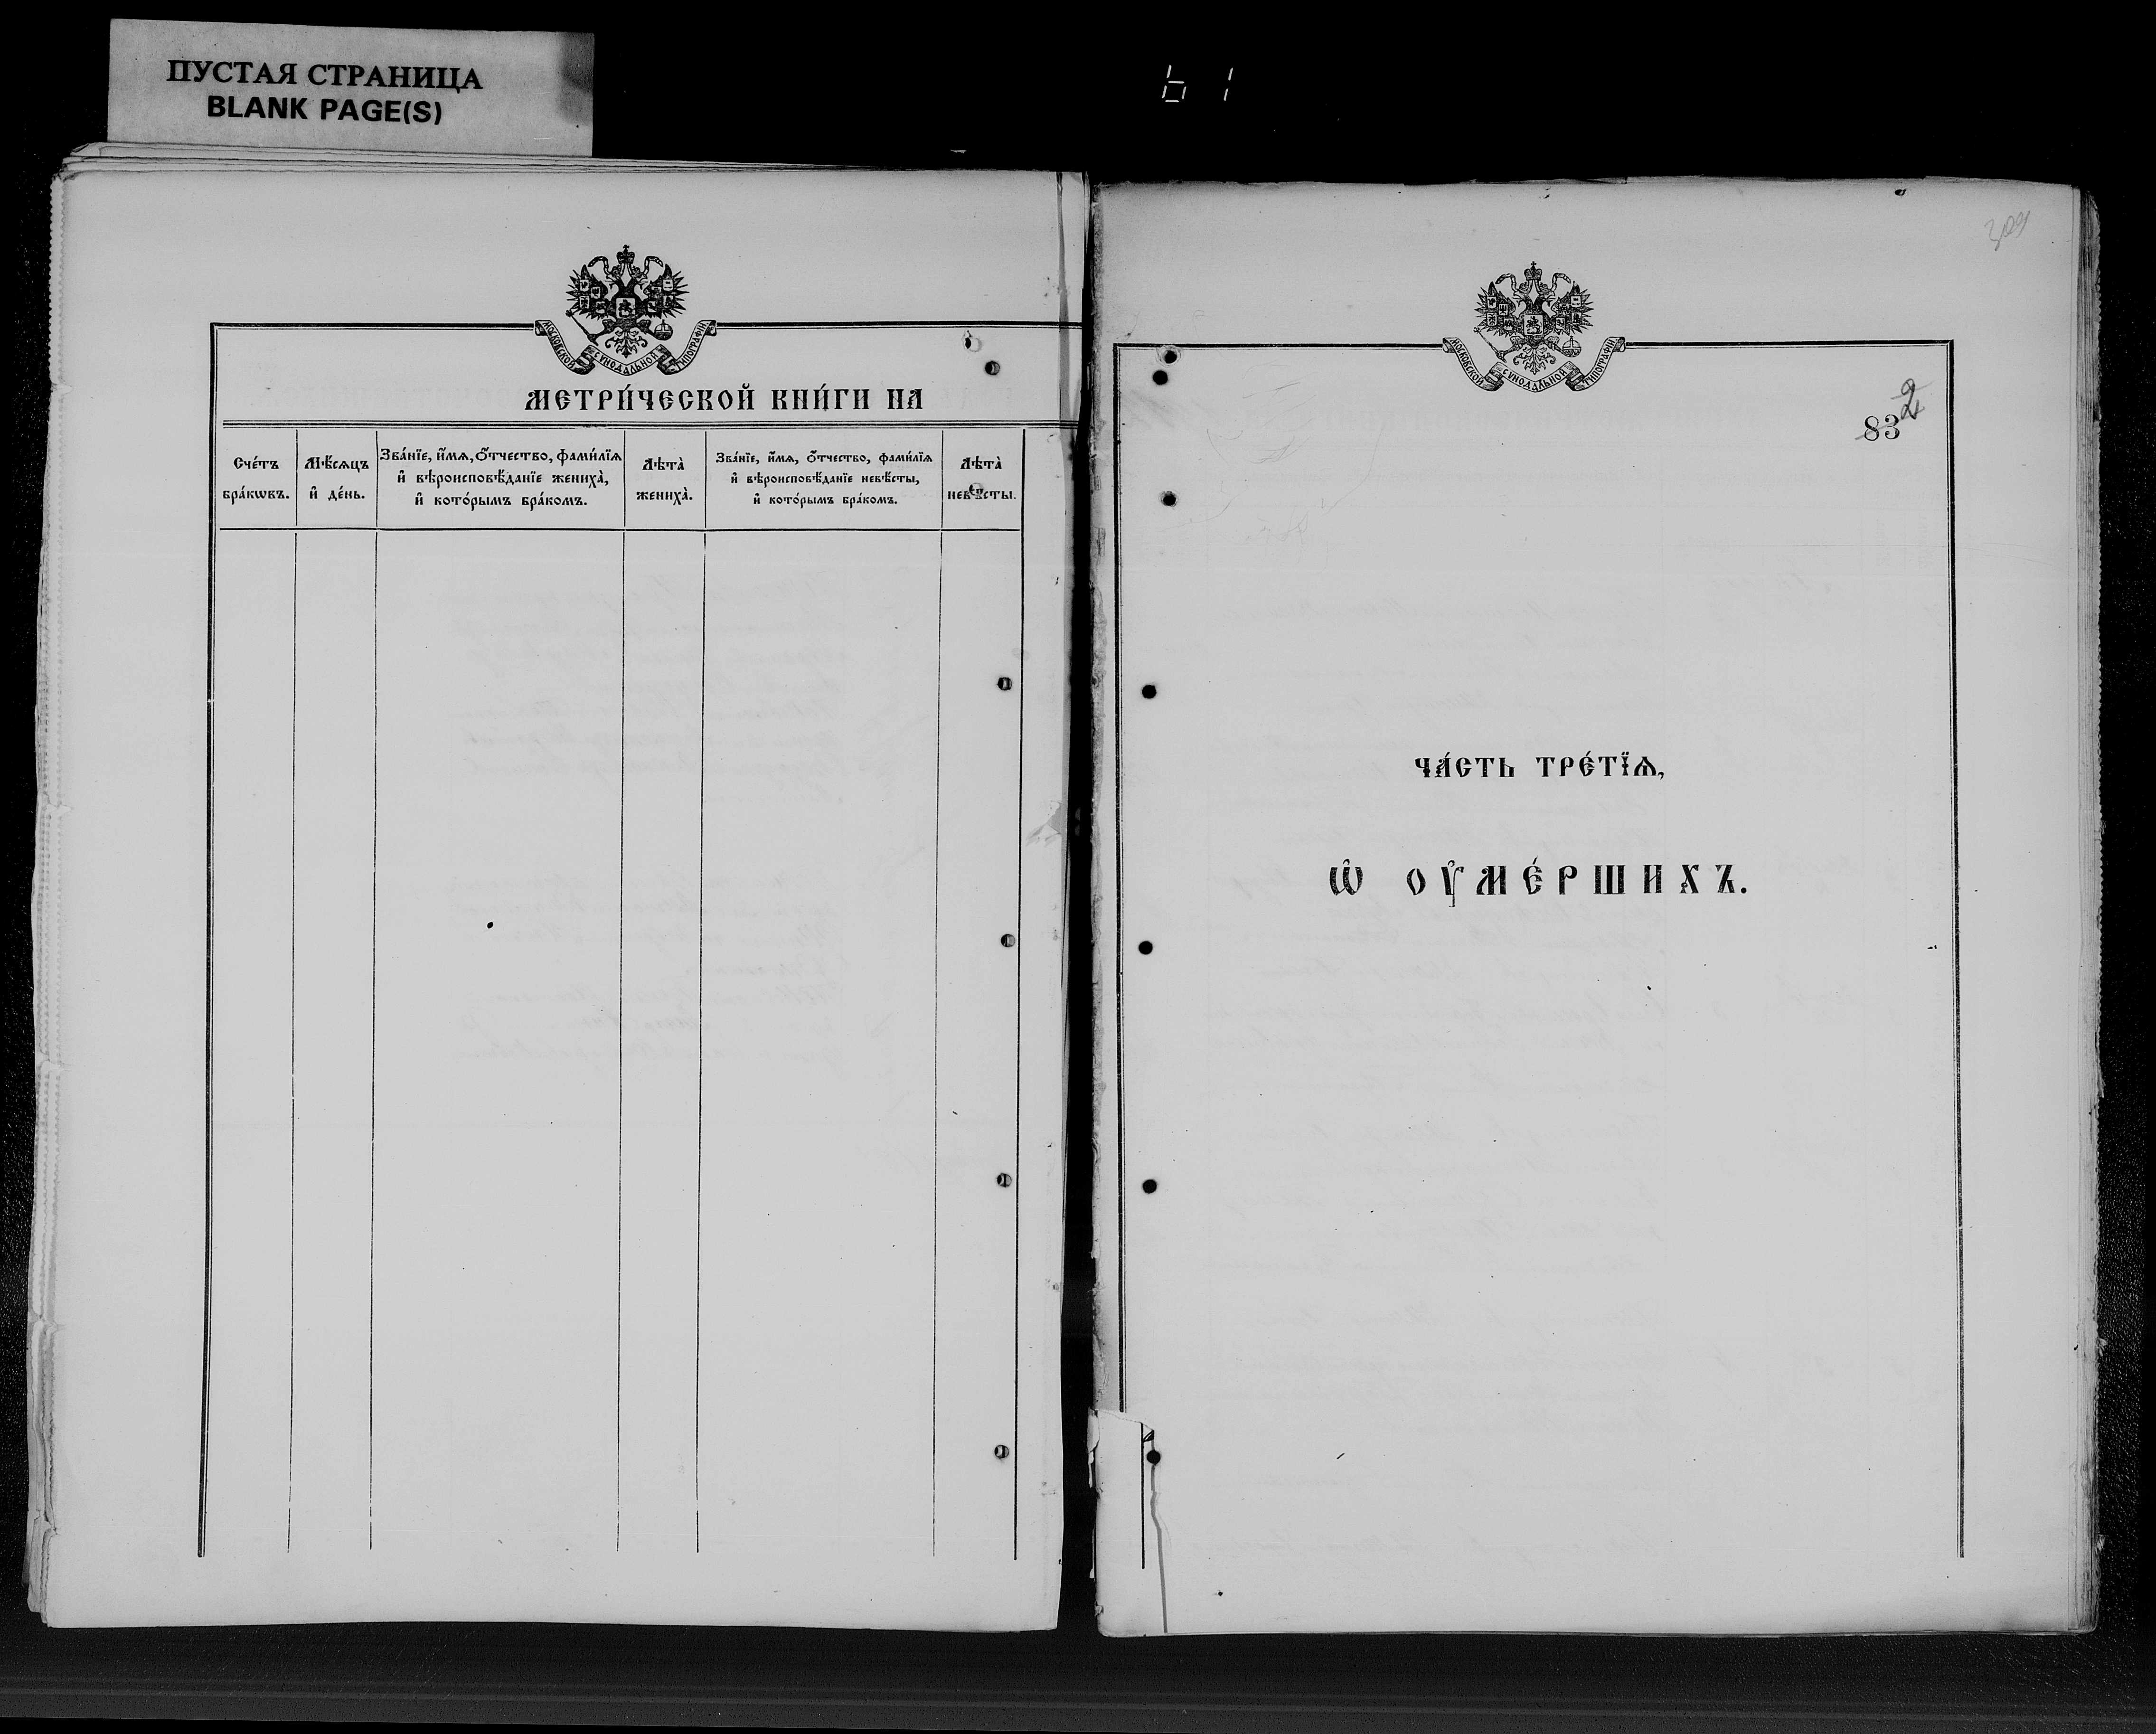 ПУСТАЯ СТРАНИЦА
BLANK PAGE(S)
61
МОСКОВСКОЙ СѴНОДАЛЬНОЙ ТИПОГРАФІИ
МЕТРИ́ЧЕСКОЙ КНИ́ГИ НА
Сче́тъ бра́кѡвъ.
Мѣ́сѧцъ и҆ де́нь.
Зва́нїе, и҆́мѧ, ѻ҆́тчество, фами́лїѧ
и҆ вѣроисповѣ́данїе жениха̀,
и҆ кото́рымъ бра́комъ.
Лѣта̀ жениха̀.
Зва́нїе, и҆́мѧ, ѻ҆́тчество, фами́лїѧ
и҆ вѣроисповѣ́данїе невѣ́сты,
и҆ кото́рымъ бра́комъ.
Лѣта̀ невѣ́сты.
МОСКОВСКОЙ СѴНОДАЛЬНОЙ ТИПОГРАФІИ
832
ЧА́СТЬ ТРЕ́ТЇѦ,
Ѡ҆ ОУ҆МЕ́РШИХЪ.